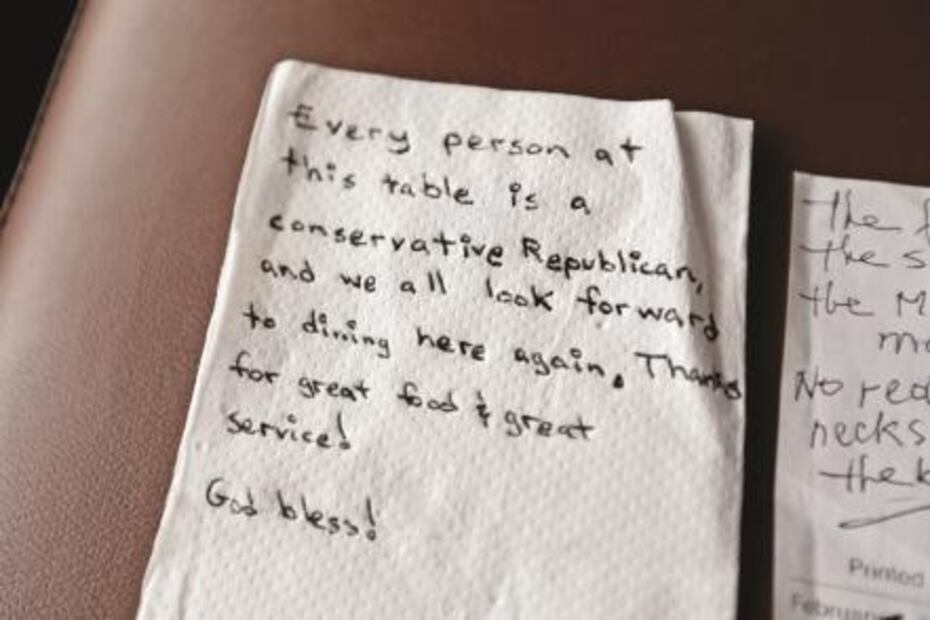 Every person at
this table is a
conservative Republican,
and we all look forward
to dining here again. Thanks
for great food & great
service!
God bless!
the
the
the
No
necks
Printed